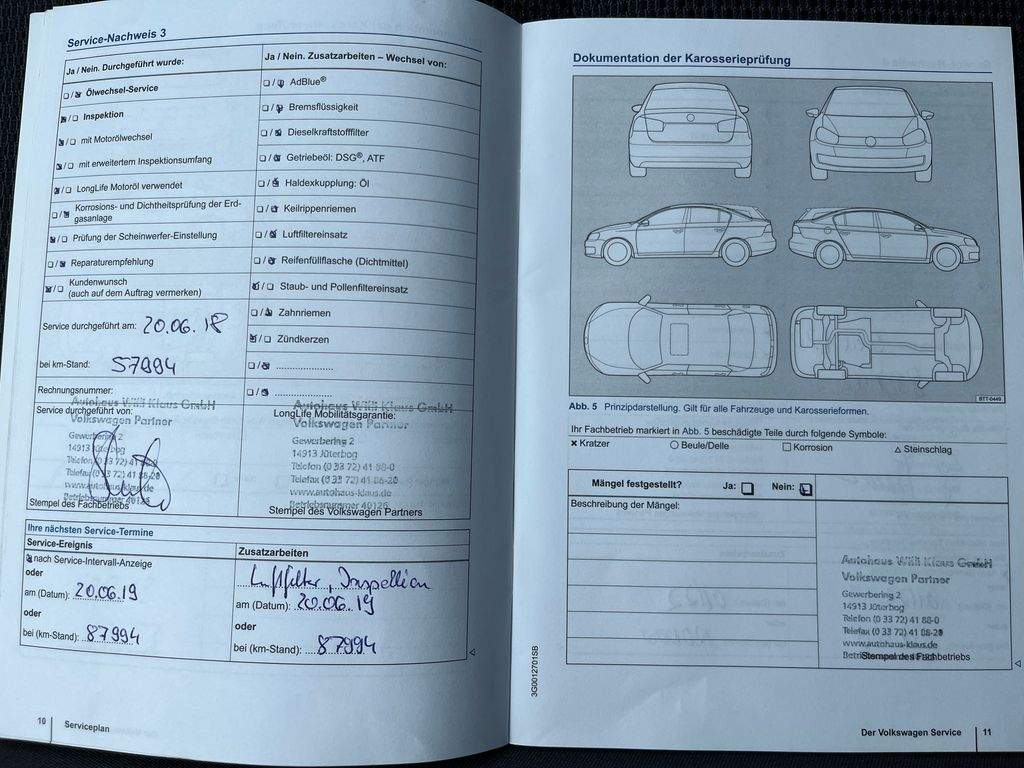 Service-Nachweis 3
Ja / Nein. Durchgeführt wurde:
❑ / ❑ Ölwechsel-Service
❑ / ❑ Inspektion
❑ / ❑ mit Motorölwechsel
❑ / ❑ mit erweitertem Inspektionsumfang
❑ / ❑ LongLife Motoröl verwendet
❑ / ❑ Korrosions- und Dichtheitsprüfung der Erd-
gasanlage
❑ / ❑ Prüfung der Scheinwerfer-Einstellung
❑ / ❑ Reparaturempfehlung
❑ / ❑ Kundenwunsch
(auch auf dem Auftrag vermerken)
Service durchgeführt am: 20.06.18
bei km-Stand: 57994
Rechnungsnummer:
Service durchgeführt von:
Autohaus Willi Klaus GmbH
Volkswagen Partner
Gewerbering 2
14913 Jüterbog
Telefon (0 33 72) 41 88-0
Telefax (0 33 72) 41 88-20
www.autohaus-klaus.de
Betriebsnummer 40126
Stempel des Fachbetriebs
Ja / Nein. Zusatzarbeiten – Wechsel von:
❑ / ❑ AdBlue®
❑ / ❑ Bremsflüssigkeit
❑ / ❑ Dieselkraftstofffilter
❑ / ❑ Getriebeöl: DSG®, ATF
❑ / ❑ Haldexkupplung: Öl
❑ / ❑ Keilrippenriemen
❑ / ❑ Luftfiltereinsatz
❑ / ❑ Reifenfüllflasche (Dichtmittel)
❑ / ❑ Staub- und Pollenfiltereinsatz
❑ / ❑ Zahnriemen
❑ / ❑ Zündkerzen
❑ / ❑ ....................
❑ / ❑ ....................
LongLife Mobilitätsgarantie:
Autohaus Willi Klaus GmbH
Volkswagen Partner
Gewerbering 2
14913 Jüterbog
Telefon (0 33 72) 41 88-0
Telefax (0 33 72) 41 88-20
www.autohaus-klaus.de
Betriebsnummer 40126
Stempel des Volkswagen Partners
Ihre nächsten Service-Termine
Service-Ereignis
❑ nach Service-Intervall-Anzeige
oder
am (Datum): 20.06.19
oder
bei (km-Stand): 87994
Zusatzarbeiten
Luftfilter, Inspektion
am (Datum): 20.06.19
oder
bei (km-Stand): 87994
10 Serviceplan
Dokumentation der Karosserieprüfung
BTT-0449
Abb. 5 Prinzipdarstellung. Gilt für alle Fahrzeuge und Karosserieformen.
Ihr Fachbetrieb markiert in Abb. 5 beschädigte Teile durch folgende Symbole:
× Kratzer ○ Beule/Delle □ Korrosion △ Steinschlag
Mängel festgestellt? Ja: ❑ Nein: ❑
Beschreibung der Mängel:
Autohaus Willi Klaus GmbH
Volkswagen Partner
Gewerbering 2
14913 Jüterbog
Telefon (0 33 72) 41 88-0
Telefax (0 33 72) 41 88-20
www.autohaus-klaus.de
Stempel des Fachbetriebs
3G0012701SB
Der Volkswagen Service 11